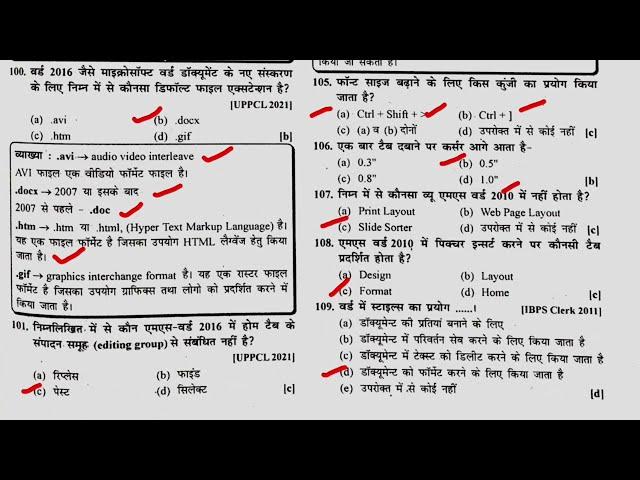 100. वर्ड 2016 जैसे माइक्रोसॉफ्ट वर्ड डॉक्यूमेंट के नए संस्करण
के लिए निम्न में से कौनसा डिफॉल्ट फाइल एक्सटेन्शन है?
[UPPCL 2021]
(a) .avi (b) .docx
(c) .htm (d) .gif [b]
व्याख्या : .avi → audio video interleave
AVI फाइल एक वीडियो फॉर्मेट फाइल है।
.docx → 2007 या इसके बाद
2007 से पहले – .doc
.htm → .htm या .html, (Hyper Text Markup Language) है।
यह एक फाइल फॉर्मेट है जिसका उपयोग HTML लैंग्वेंज हेतु किया
जाता है।
.gif → graphics interchange format है। यह एक रास्टर फाइल
फॉर्मेट है जिसका उपयोग ग्राफिक्स तथा लोगो को प्रदर्शित करने में
किया जाता है।
101. निम्नलिखित में से कौन एमएस-वर्ड 2016 में होम टैब के
संपादन समूह (editing group) से संबंधित नहीं है?
[UPPCL 2021]
(a) रिप्लेस (b) फाइंड
(c) पेस्ट (d) सिलेक्ट [c]
किया जा सकता है।
105. फॉन्ट साइज बढ़ाने के लिए किस कुंजी का प्रयोग किया
जाता है?
(a) Ctrl + Shift + > (b) Ctrl + ]
(c) (a) व (b) दोनों (d) उपरोक्त में से कोई नहीं [c]
106. एक बार टैब दबाने पर कर्सर आगे आता है-
(a) 0.3" (b) 0.5"
(c) 0.8" (d) 1.0" [b]
107. निम्न में से कौनसा व्यू एमएस वर्ड 2010 में नहीं होता है?
(a) Print Layout (b) Web Page Layout
(c) Slide Sorter (d) उपरोक्त में से कोई नहीं [c]
108. एमएस वर्ड 2010 में पिक्चर इन्सर्ट करने पर कौनसी टैब
प्रदर्शित होता है?
(a) Design (b) Layout
(c) Format (d) Home [c]
109. वर्ड में स्टाइल्स का प्रयोग ......! [IBPS Clerk 2011]
(a) डॉक्यूमेन्ट की प्रतियां बनाने के लिए
(b) डॉक्यूमेन्ट में परिवर्तन सेव करने के लिए किया जाता है
(c) डॉक्यूमेन्ट में टेक्स्ट को डिलीट करने के लिए किया जाता है
(d) डॉक्यूमेन्ट को फॉर्मेट करने के लिए किया जाता है
(e) उपरोक्त में से कोई नहीं [d]